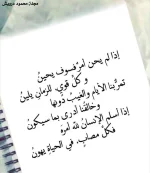 مجلة محمود درويش
إذا لم يحن أمر فسوف يحينُ
وكلُّ قويٍّ، للزمان يلينُ
تمرُّ بنا الأيام والغيب دونها
وخالقنا أدرى بما سيكونُ
إذا أسلم الإنسانُ لله أمره
فكلُّ مصابٍ، في الحياةِ يهونُ